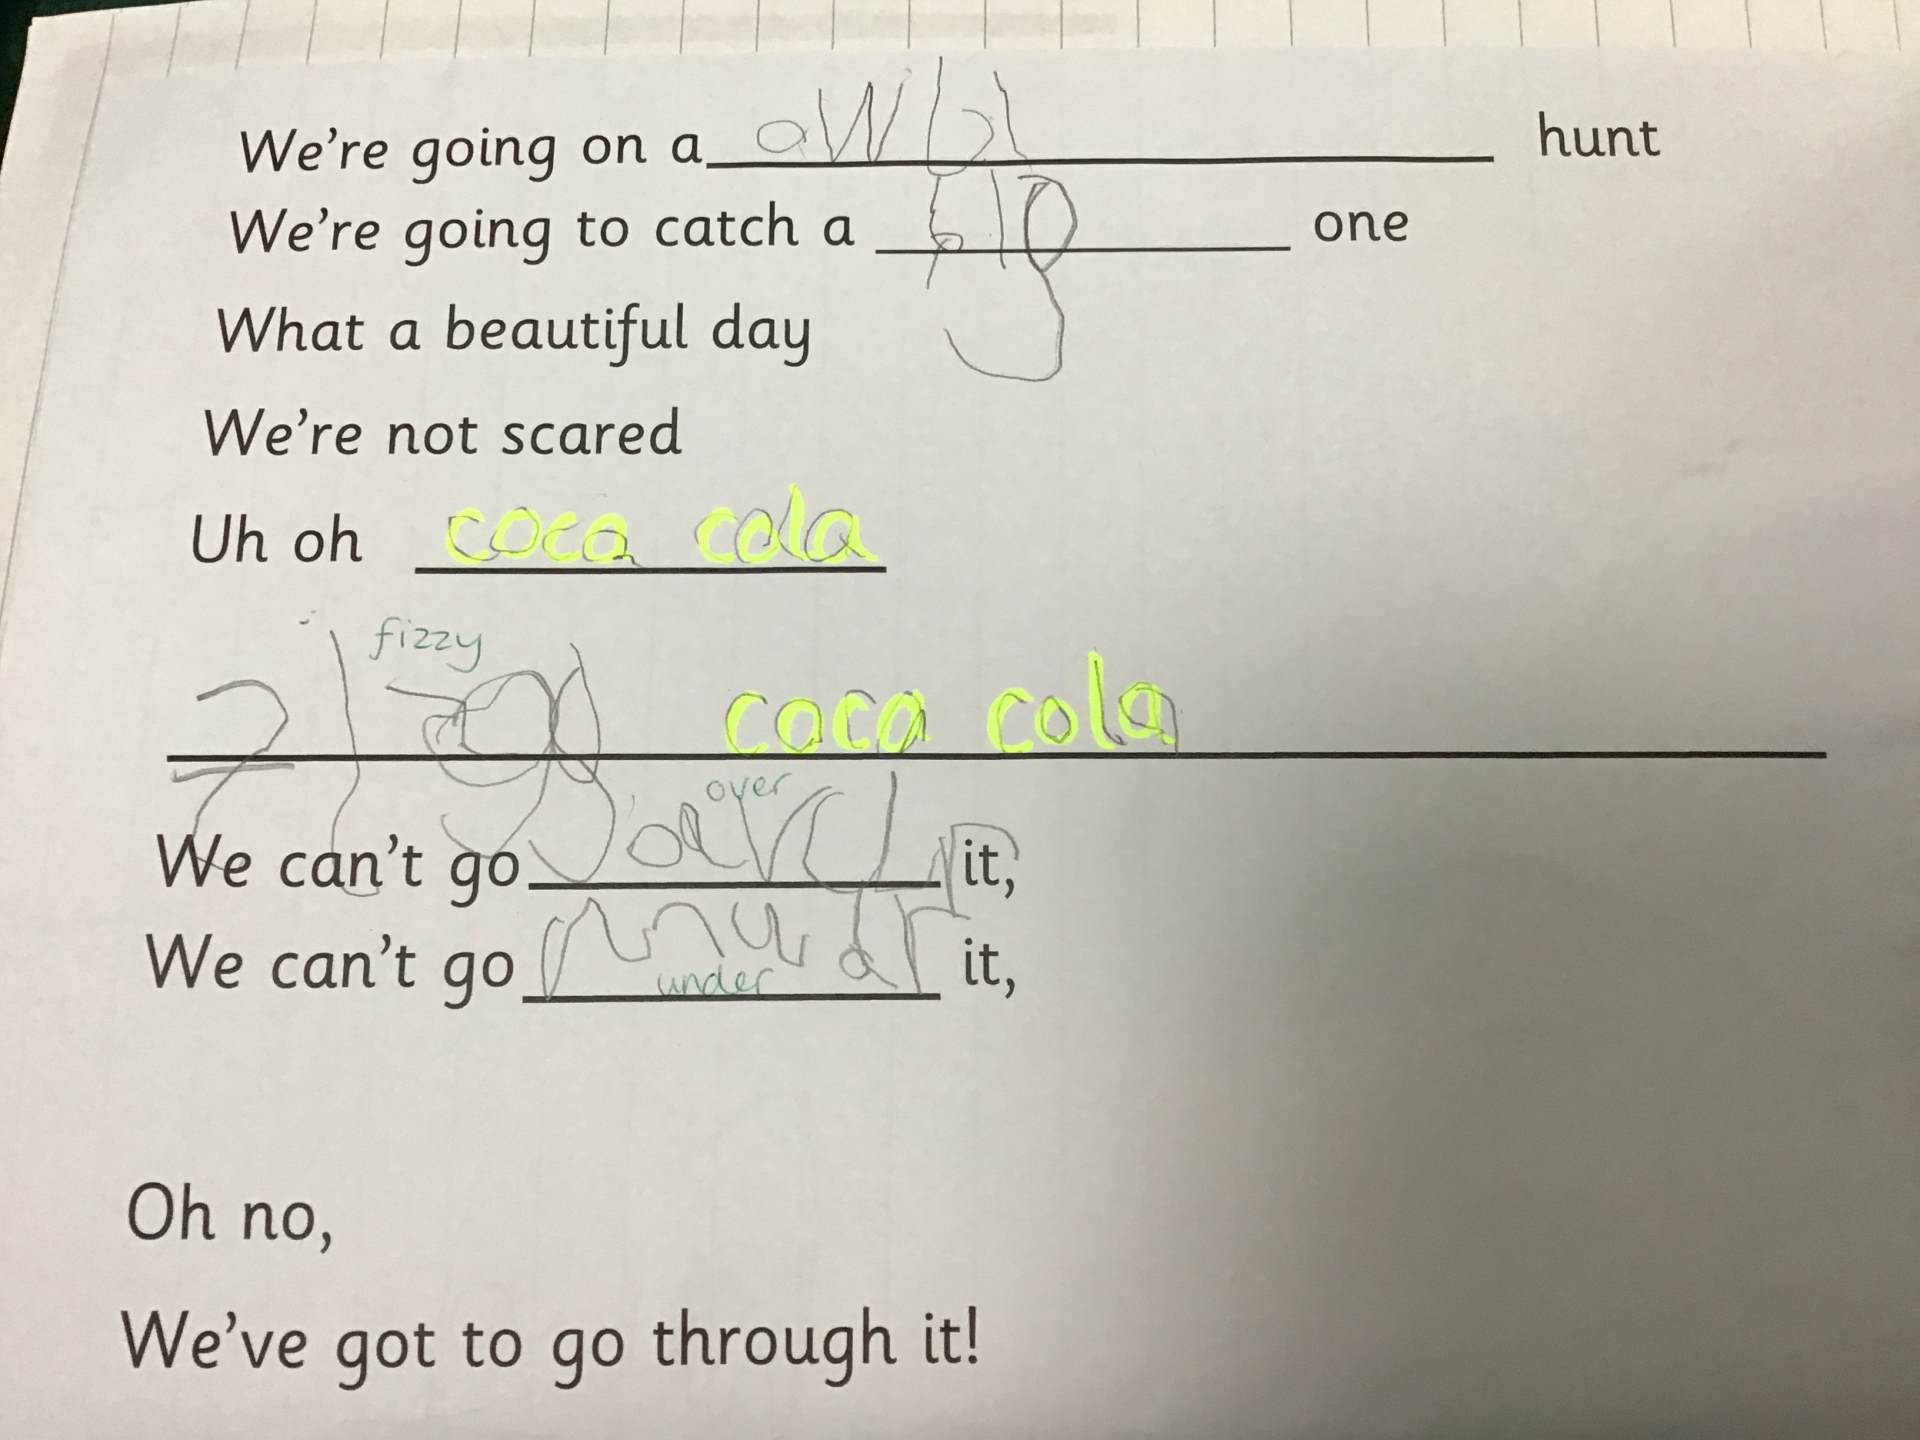 We're going on a awl hunt
We're going to catch a big one
What a beautiful day
We're not scared
Uh oh coca cola
fizzy
coca cola
over
We can't go it,
We can't go under it,
Oh no,
We've got to go through it!